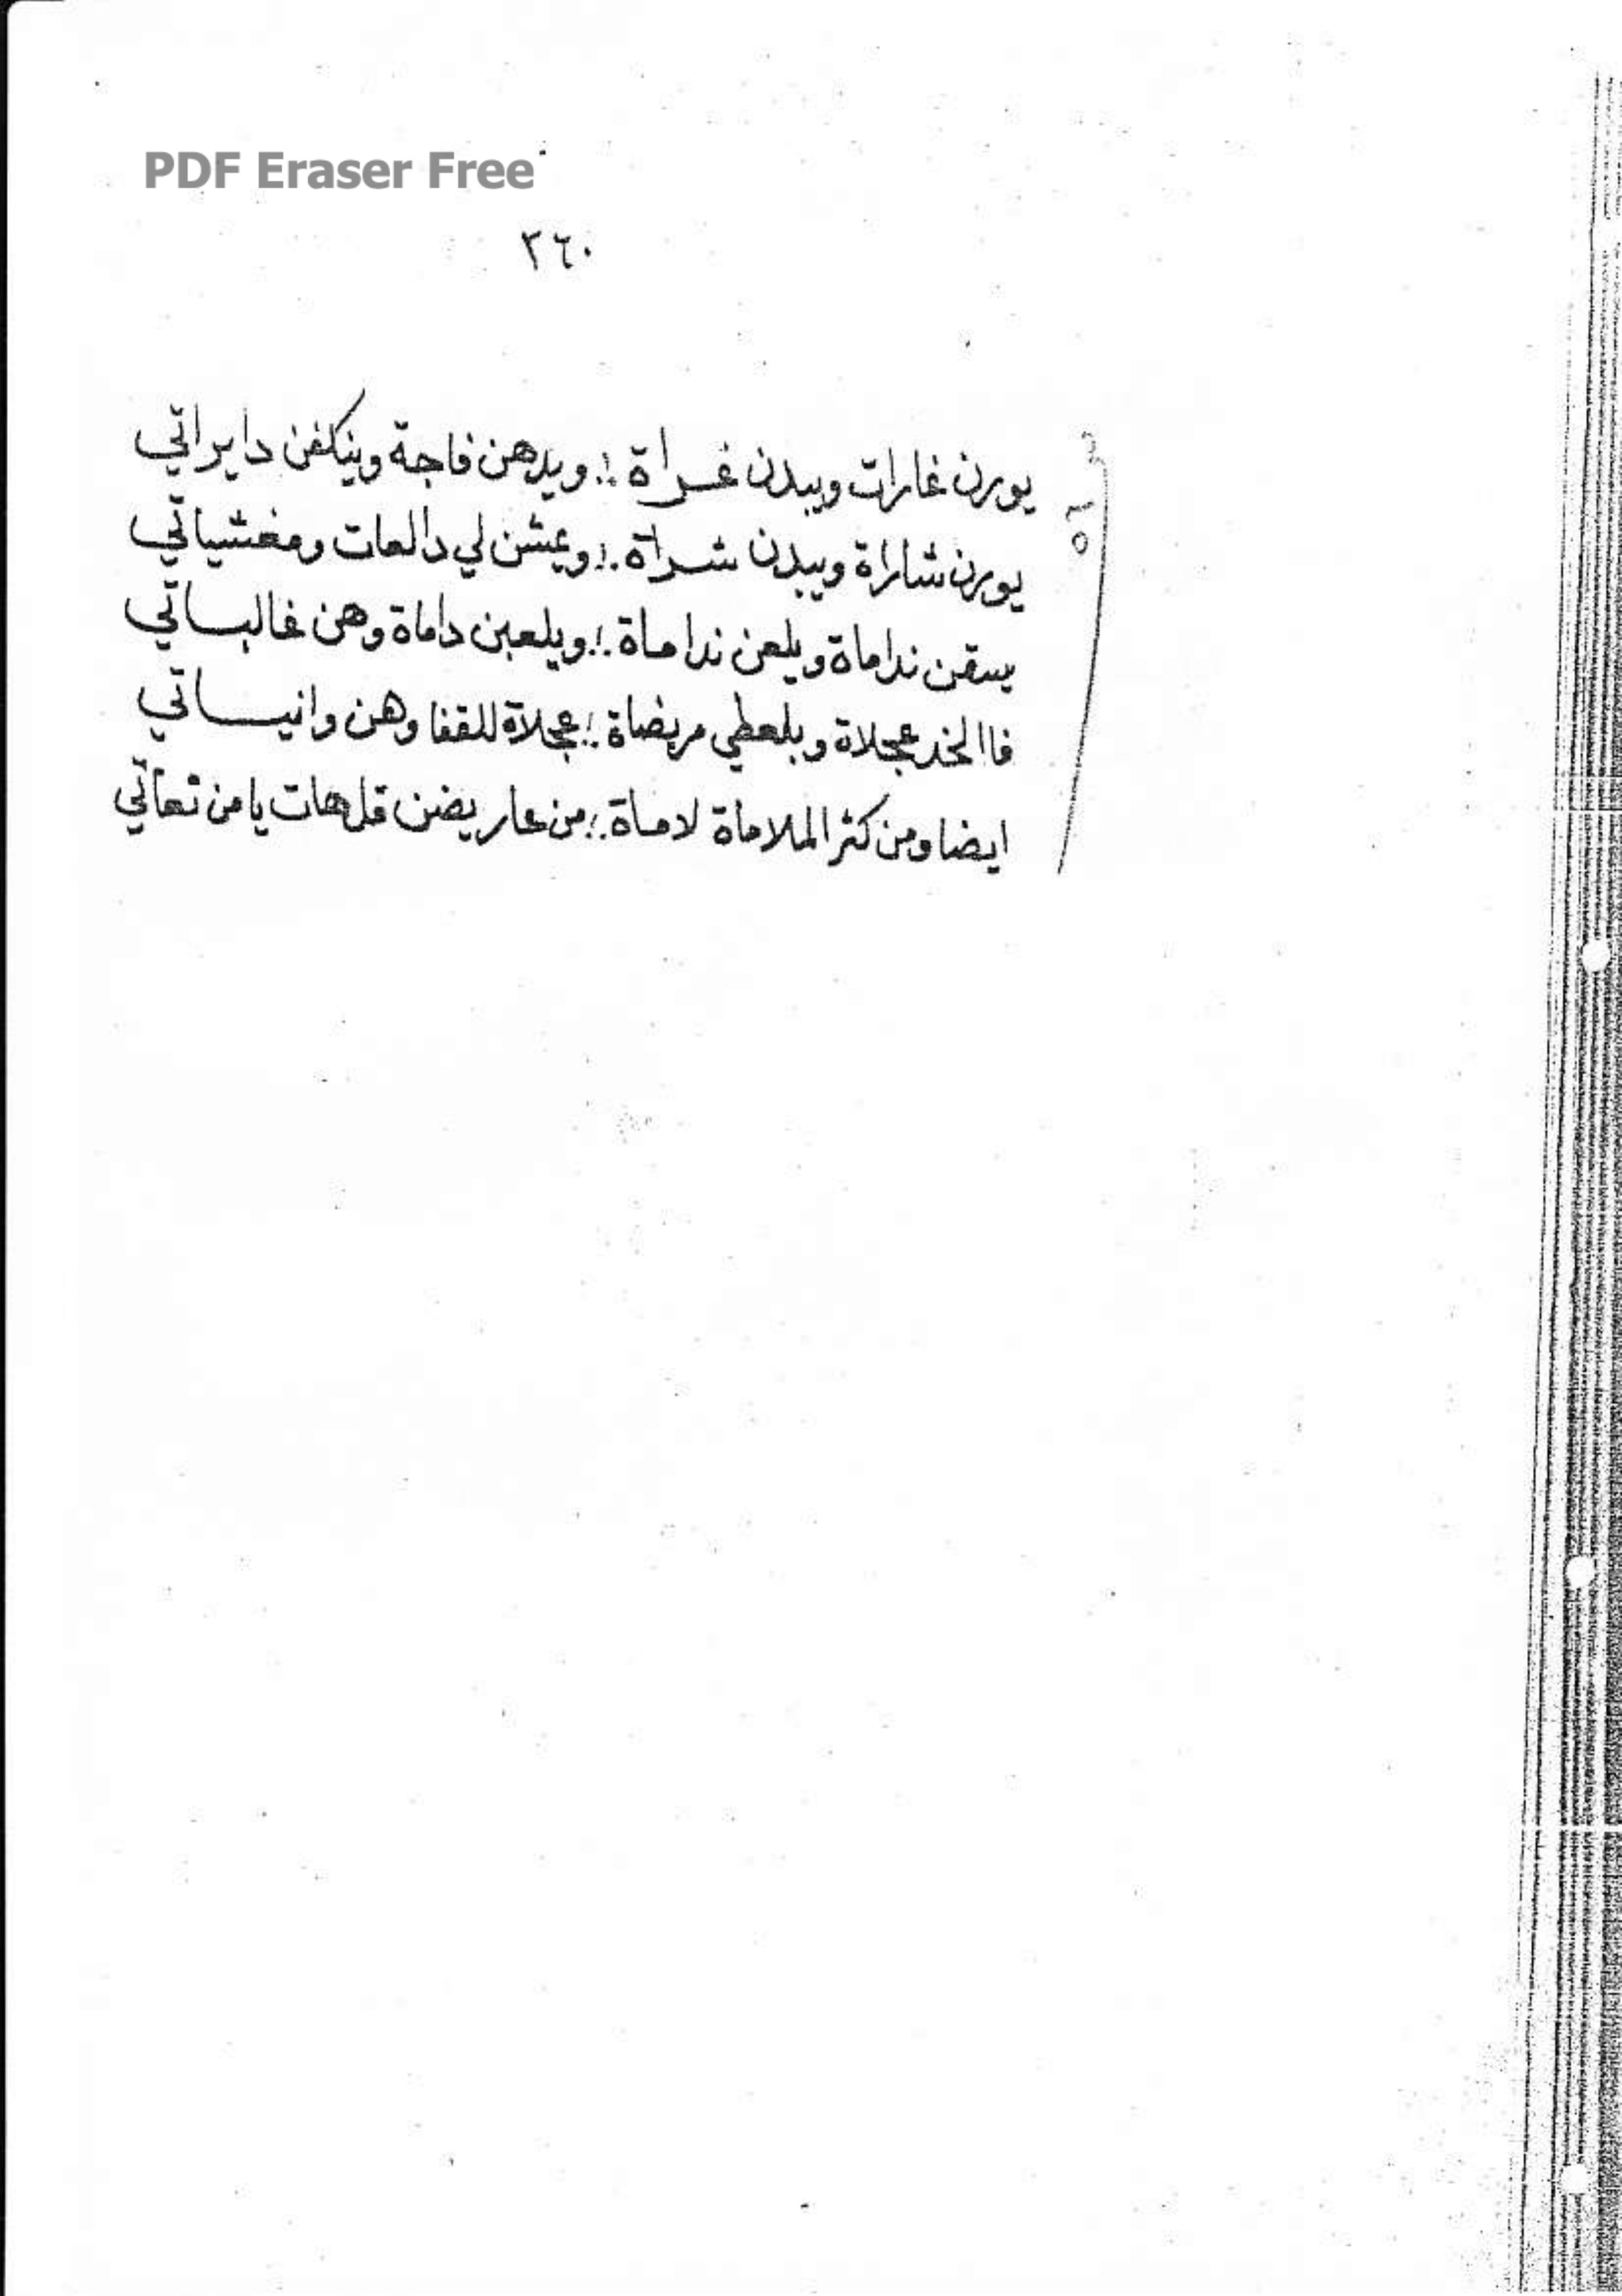 PDF Eraser Free
٢٦٠
يورن غارات ويبدن غراة ؛ ويدهن فاجة وينكفن دايراتي
يورن شاراة ويبدن شراة ؛ ويمشن لي دالعات ومغشياتي
يسقن نداماة ويلعن نداماة ؛ ويلعبن داماة وهن غالباتي
فاالخد عجلاة وبلعطي مريضاة ؛ عجلاة للقفا وهن وانيساتي
ايضا ومن كثر الملاماة لاماة ؛ من عاريضن قل هات يا من تعاتي